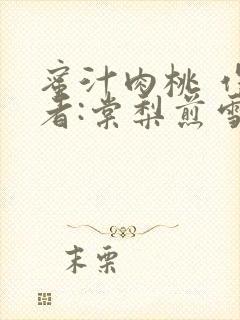 蜜汁肉桃
者:棠梨煎雪
末栗